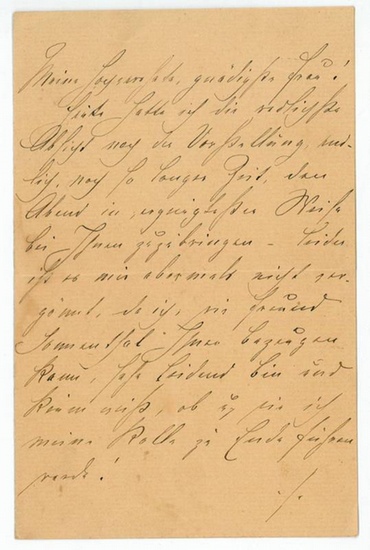 Meine hochverehrte, gnädigste Frau!
Heute hatte ich die redlichste
Absicht nach der Vorstellung, end-
lich, nach so langer Zeit, den
Abend in vergnügtester Weise
bei Ihnen zuzubringen – leider
ist es mir abermals nicht ver-
gönnt, da ich, wie Freund
Sonnenthal Ihnen bezeugen
kann, sehr leidend bin und
kaum weiß, ob u wie ich
meine Rolle zu Ende führen
werde!
./.